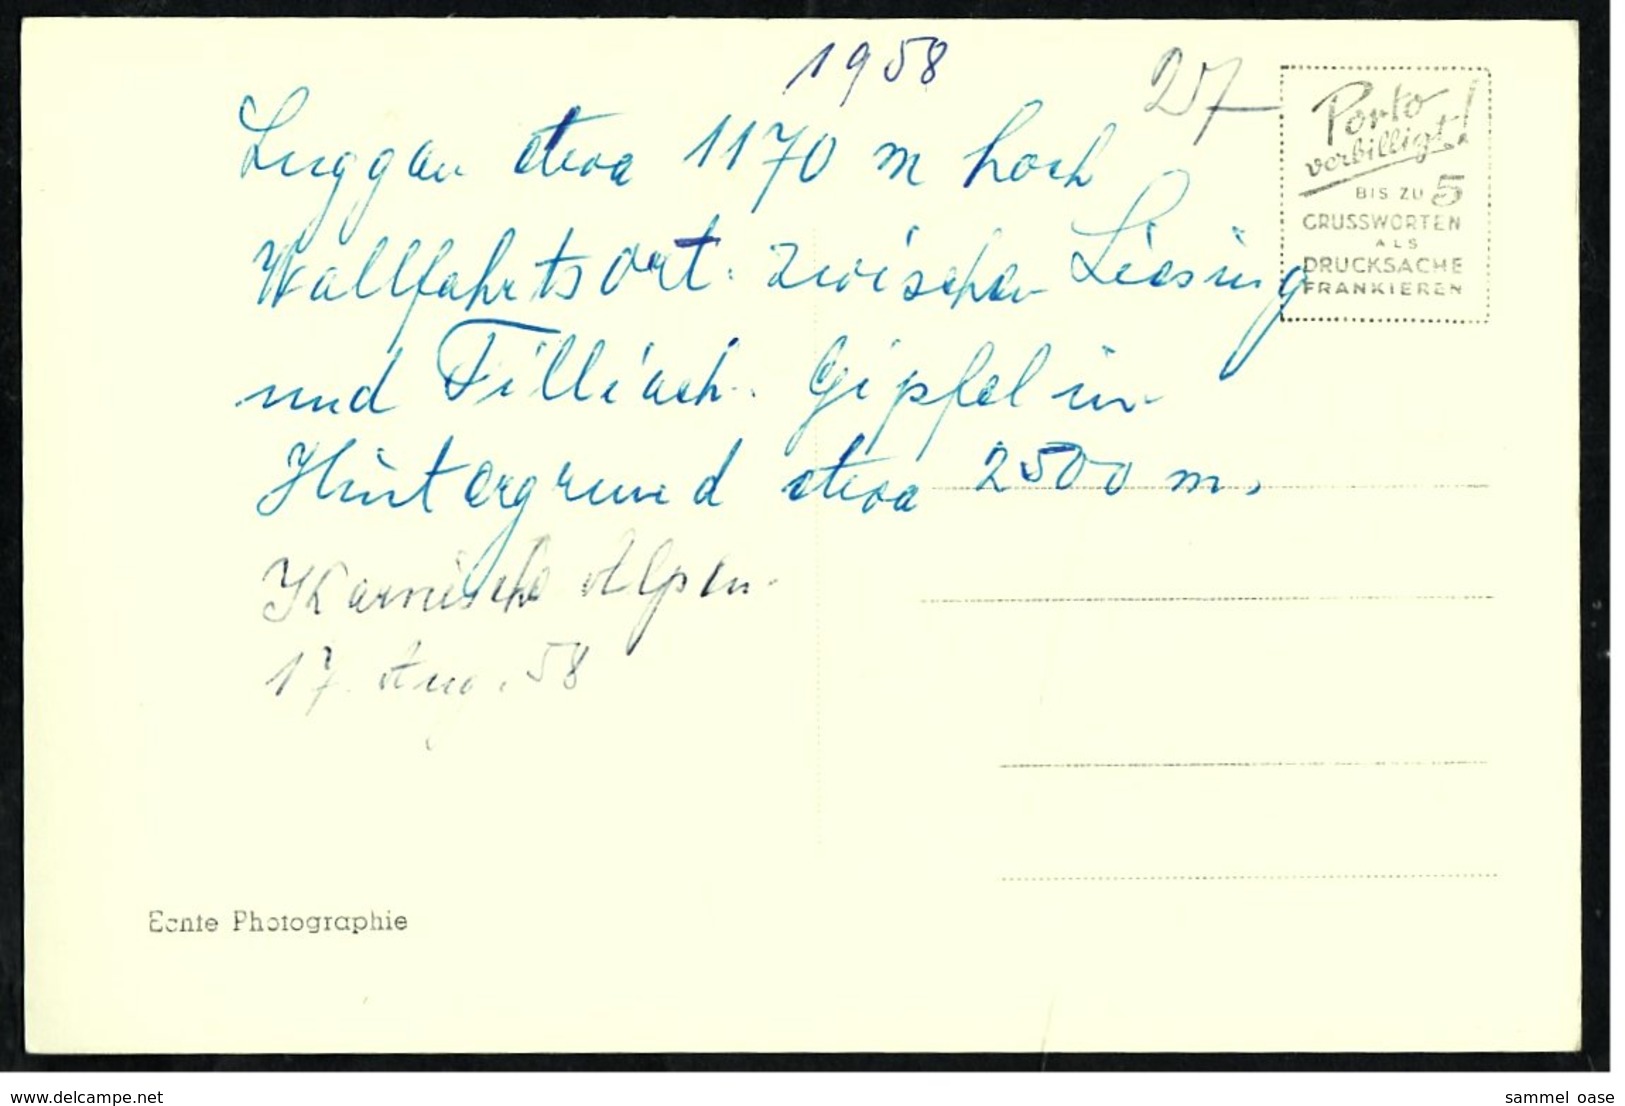 1958
27
Luggau etwa 1170 m hoch
Wallfahrtsort. zwischen Liesing
und Tilliach. Gipfel im
Hintergrund etwa 2500 m.
Karnische Alpen.
17. Aug. 58
Porto
verbilligt!
BIS ZU 5
GRUSSWORTEN
ALS
DRUCKSACHE
FRANKIEREN
Echte Photographie
www.delcampe.net
sammel_oase